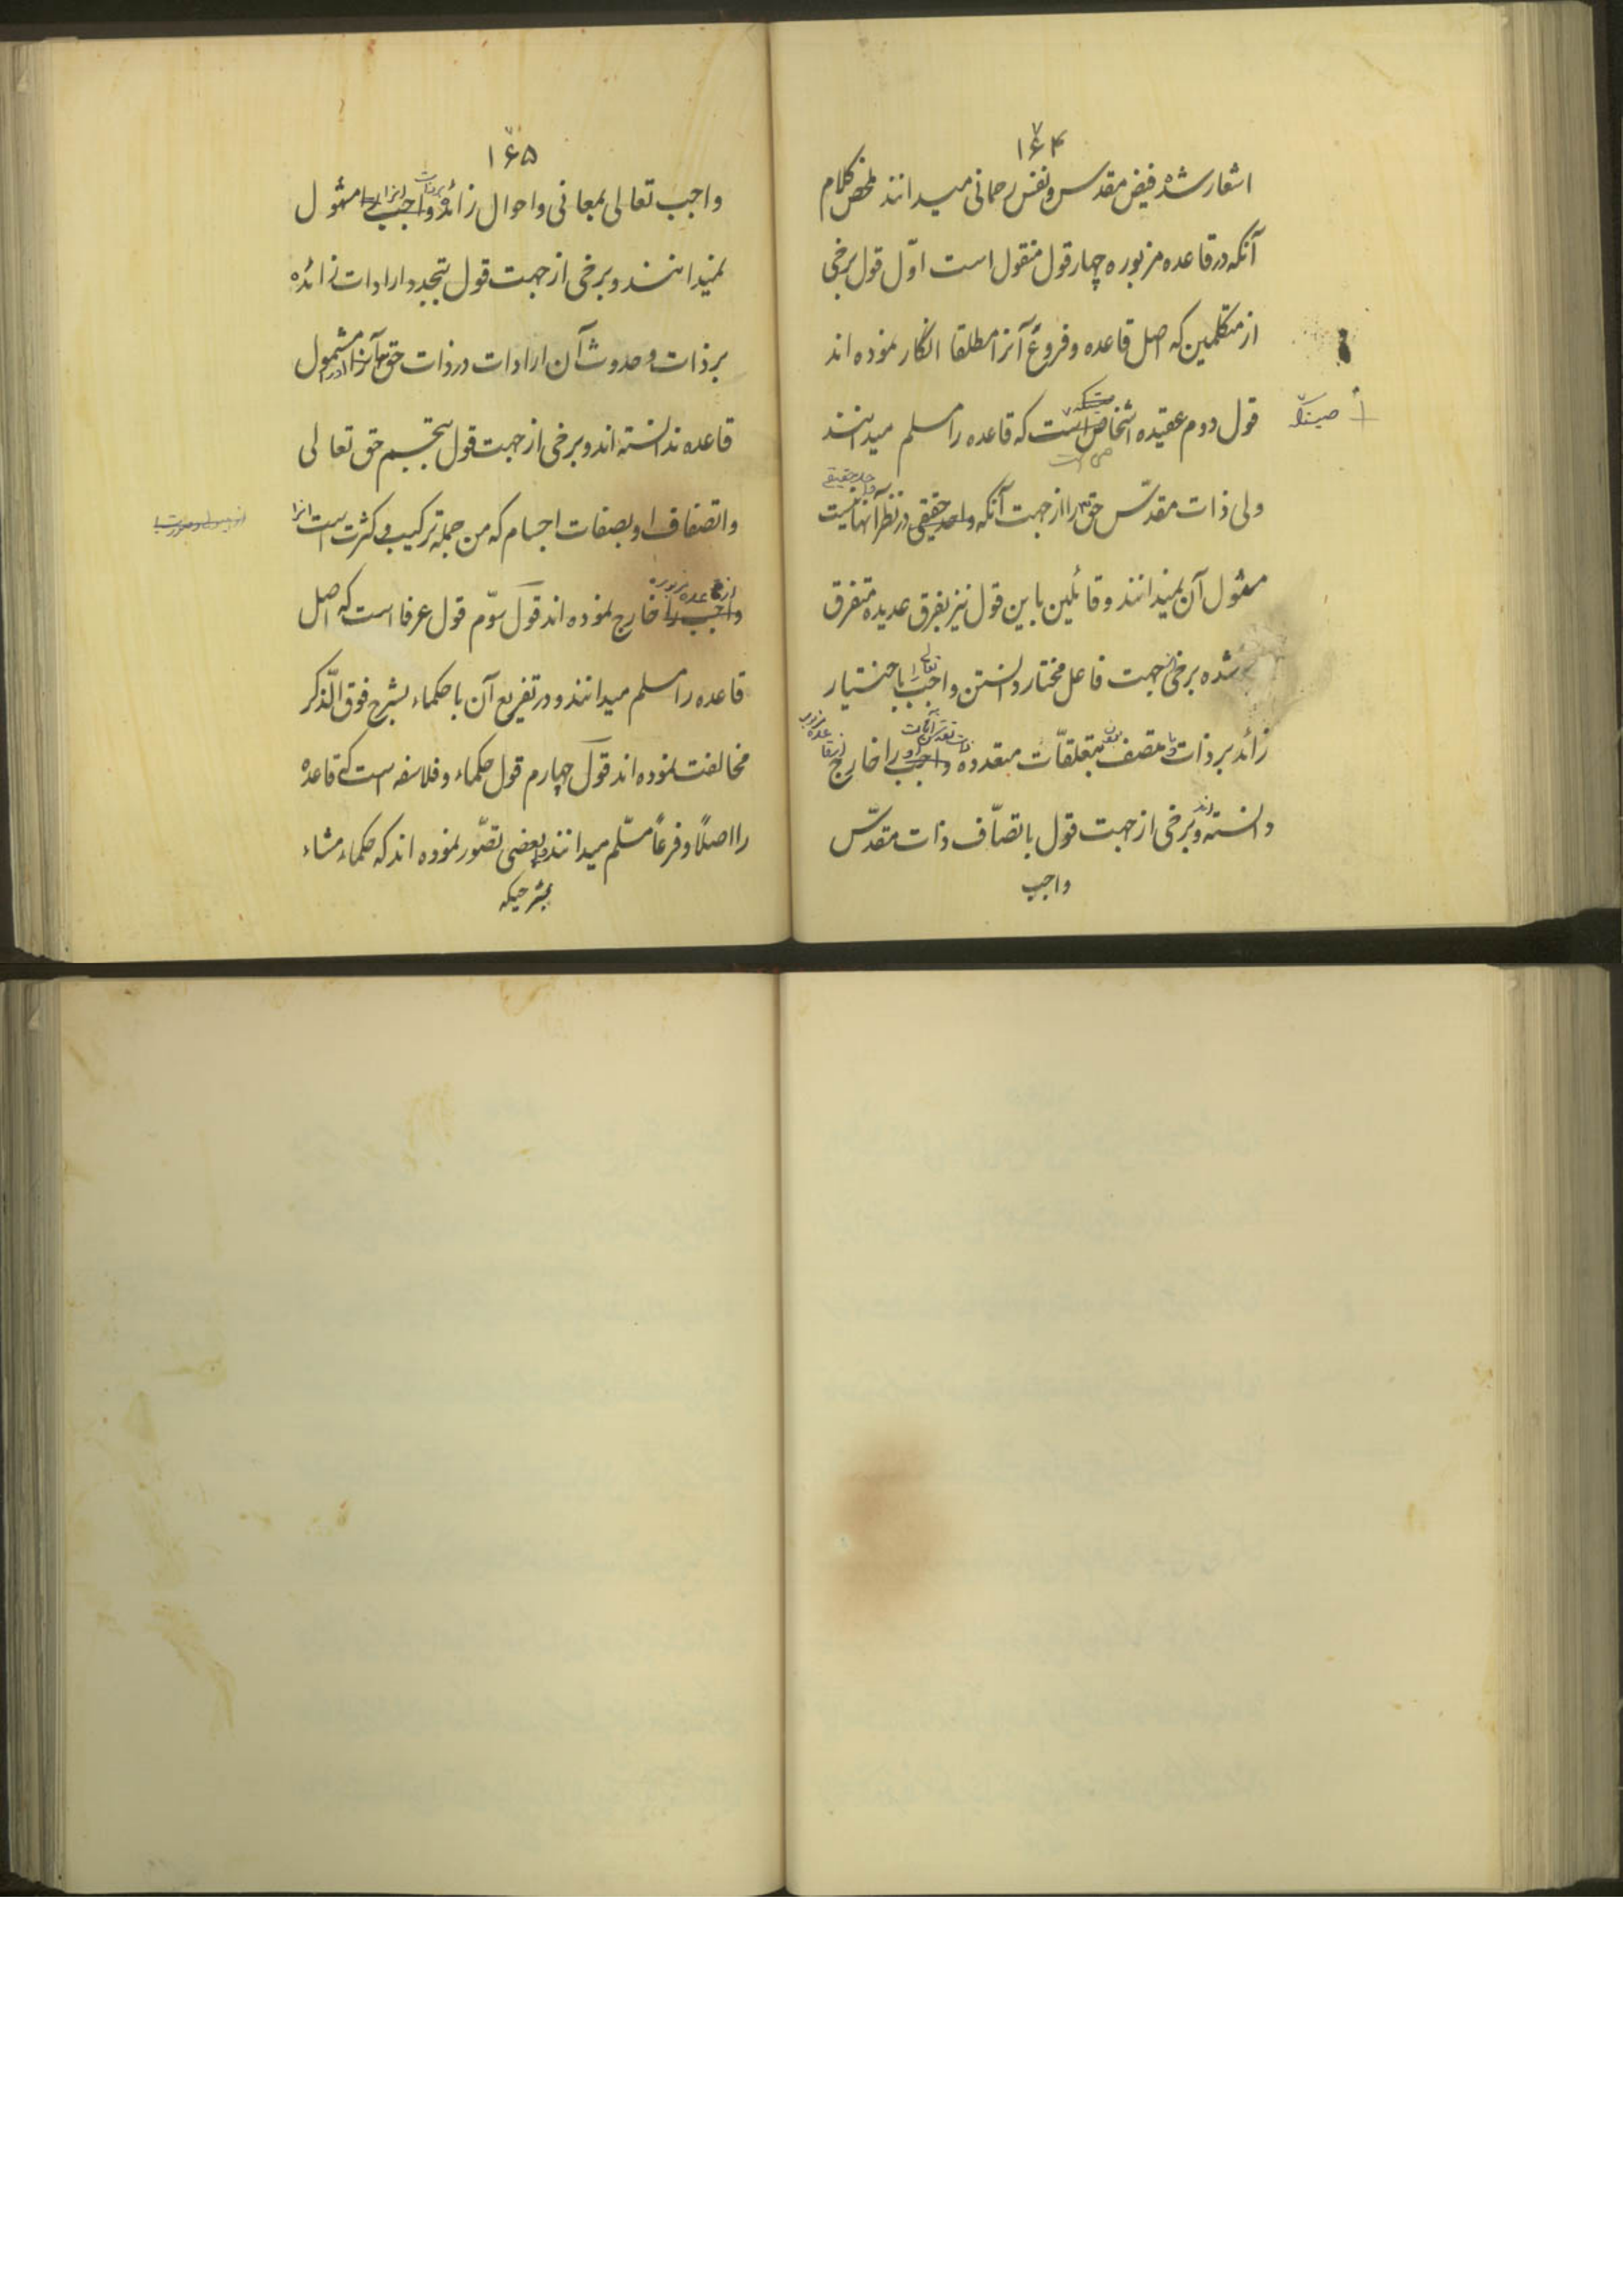 ۱۶۴
اشعار شد فیض مقدس و نفس رحمانی میدانند ملخص کلام
آنکه در قاعده مزبوره چهار قول منقول است اوّل قول برخی
از متکلمین که اصل قاعده و فروع آنرا مطلقا انکار نموده اند
قول دوم عقیده اشخاص است که قاعده را مسلم میدانند
ولی ذات مقدّس حق را از جهت آنکه واحد حقیقی در نظر آنها نیست
مشمول آن نمیدانند و قائلین باین قول نیز بفرق عدیده متفرق
شده برخی از جهت فاعل مختار دانستن واجب تعالی را باختیار
زائد بر ذات و متصف بتعلقّات متعدده واجب را خارج
دانسته اند و برخی از جهت قول باتصّاف ذات مقدّس
واجب
۱۶۵
واجب تعالی بمعانی و احوال زائده بر ذات واجب را مشمول
نمیدانند و برخی از جهت قول بتجدد ارادات زائده
بر ذات و حدوث آن ارادات در ذات حق آنرا مشمول
قاعده ندانسته اند و برخی از جهت قول بتجسم حق تعالی
و اتصاف او بصفات اجسام که من جمله ترکیب و کثرت است آنرا
از قاعده مزبوره
واجب را خارج نموده اند قول سوّم قول عرفا است که اصل
قاعده را مسلم میدانند و در تفریع آن با حکماء بشرح فوق الذّکر
مخالفت نموده اند قول چهارم قول حکماء و فلاسفه است که قاعده
را اصلاً و فرعاً مسلّم میدانند و بعضی تصّور نموده اند که حکماء مشاء
بشرحیکه